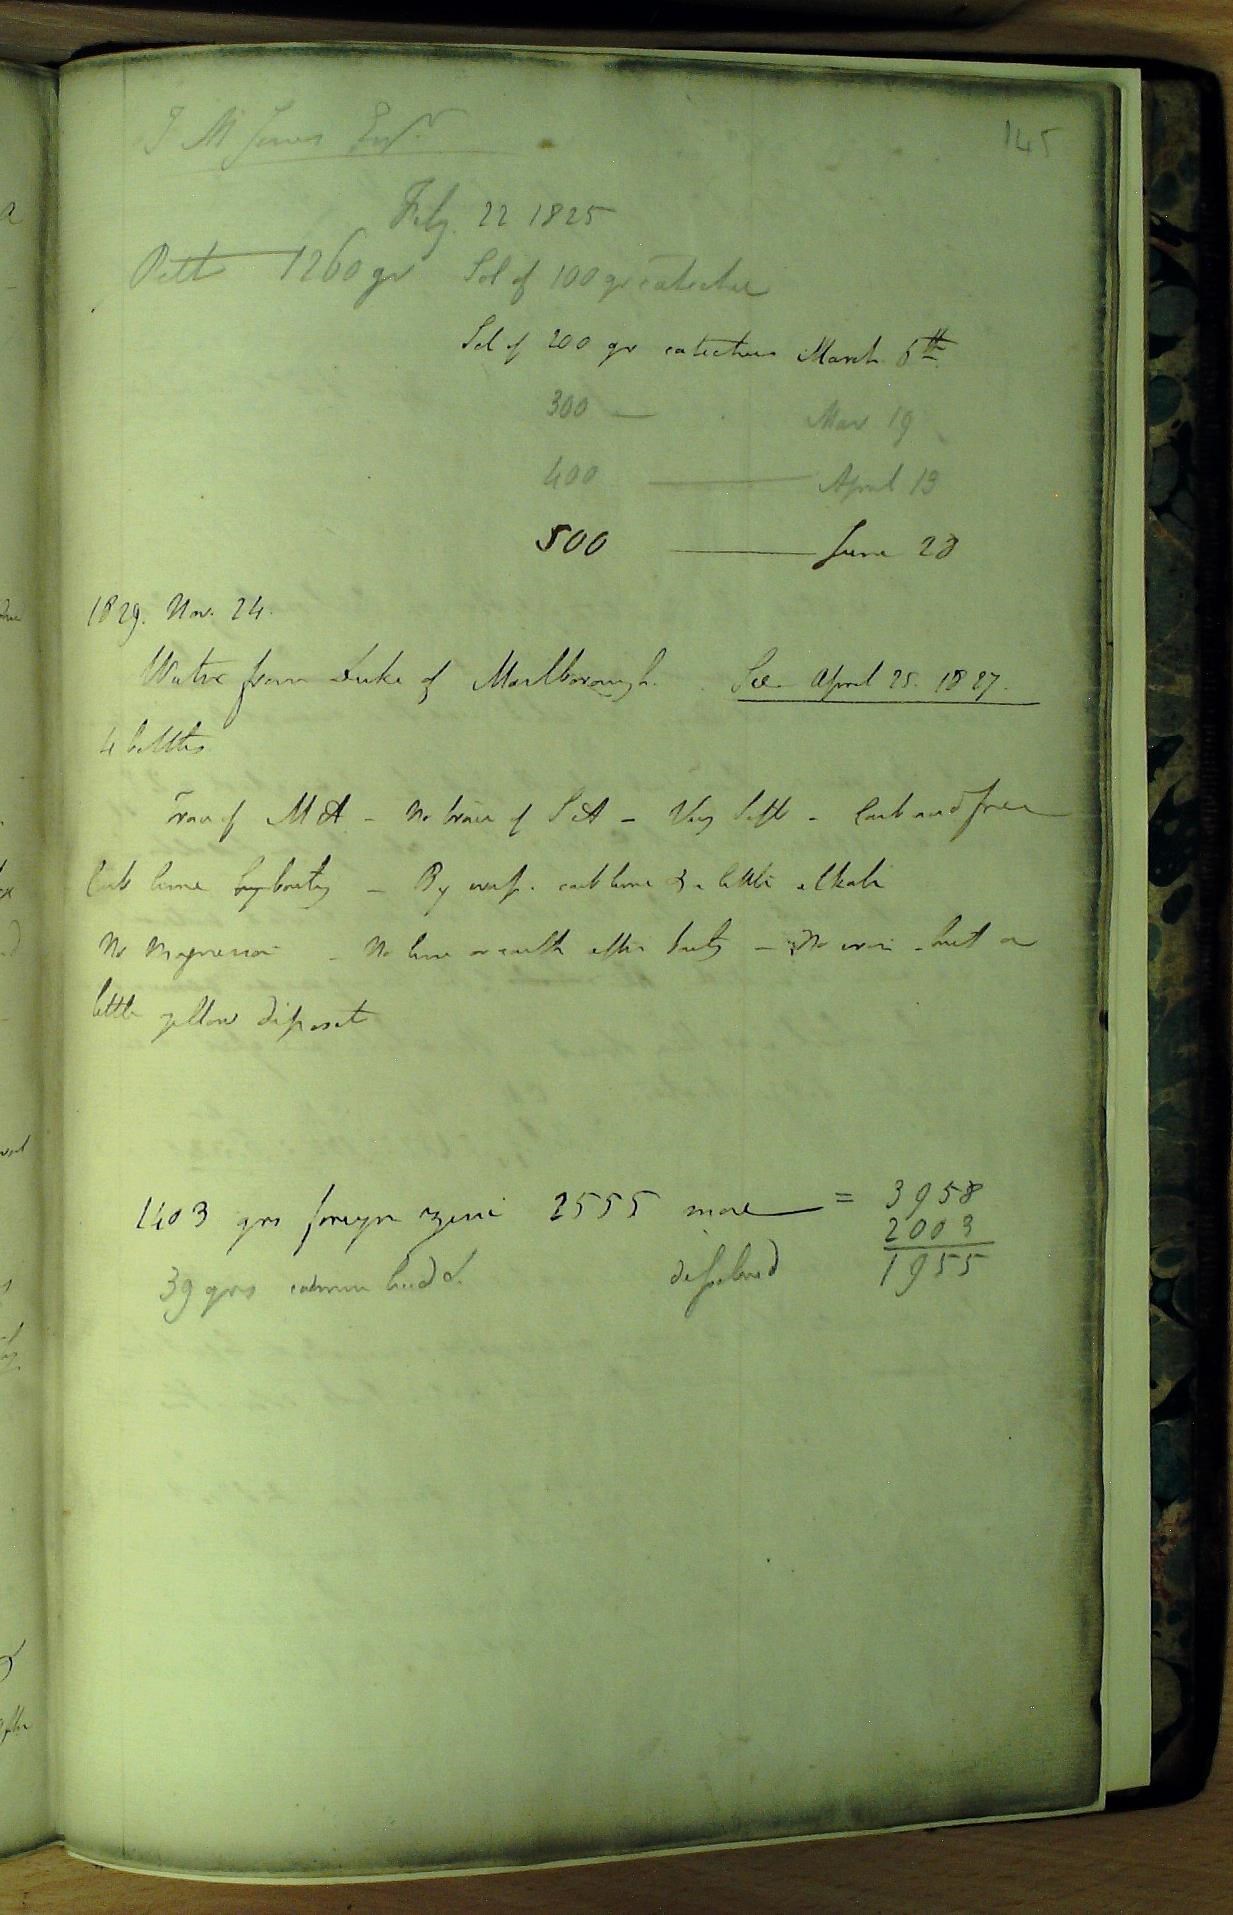 145
Feby. 22 1825
1260 gr Sol of 100 gr catechu
Sol of 200 gr catechu March 5th
300 — Mar 19
400 — April 13
500 — June 28
1829. Nov. 24.
Water from Duke of Marlborough. See April 25. 1827.
4 bottles
Trace of M A - No trace of S A - Very Soft - Carb and free
Carb lime by boiling - By evap. carb lime & a little alkali
No Magnesia - No lime or earth after boilg - No iron - but a
little yellow deposit
1403 grs foreign zinc 2555 more = 3958
2003
39 grs dissolved 1955